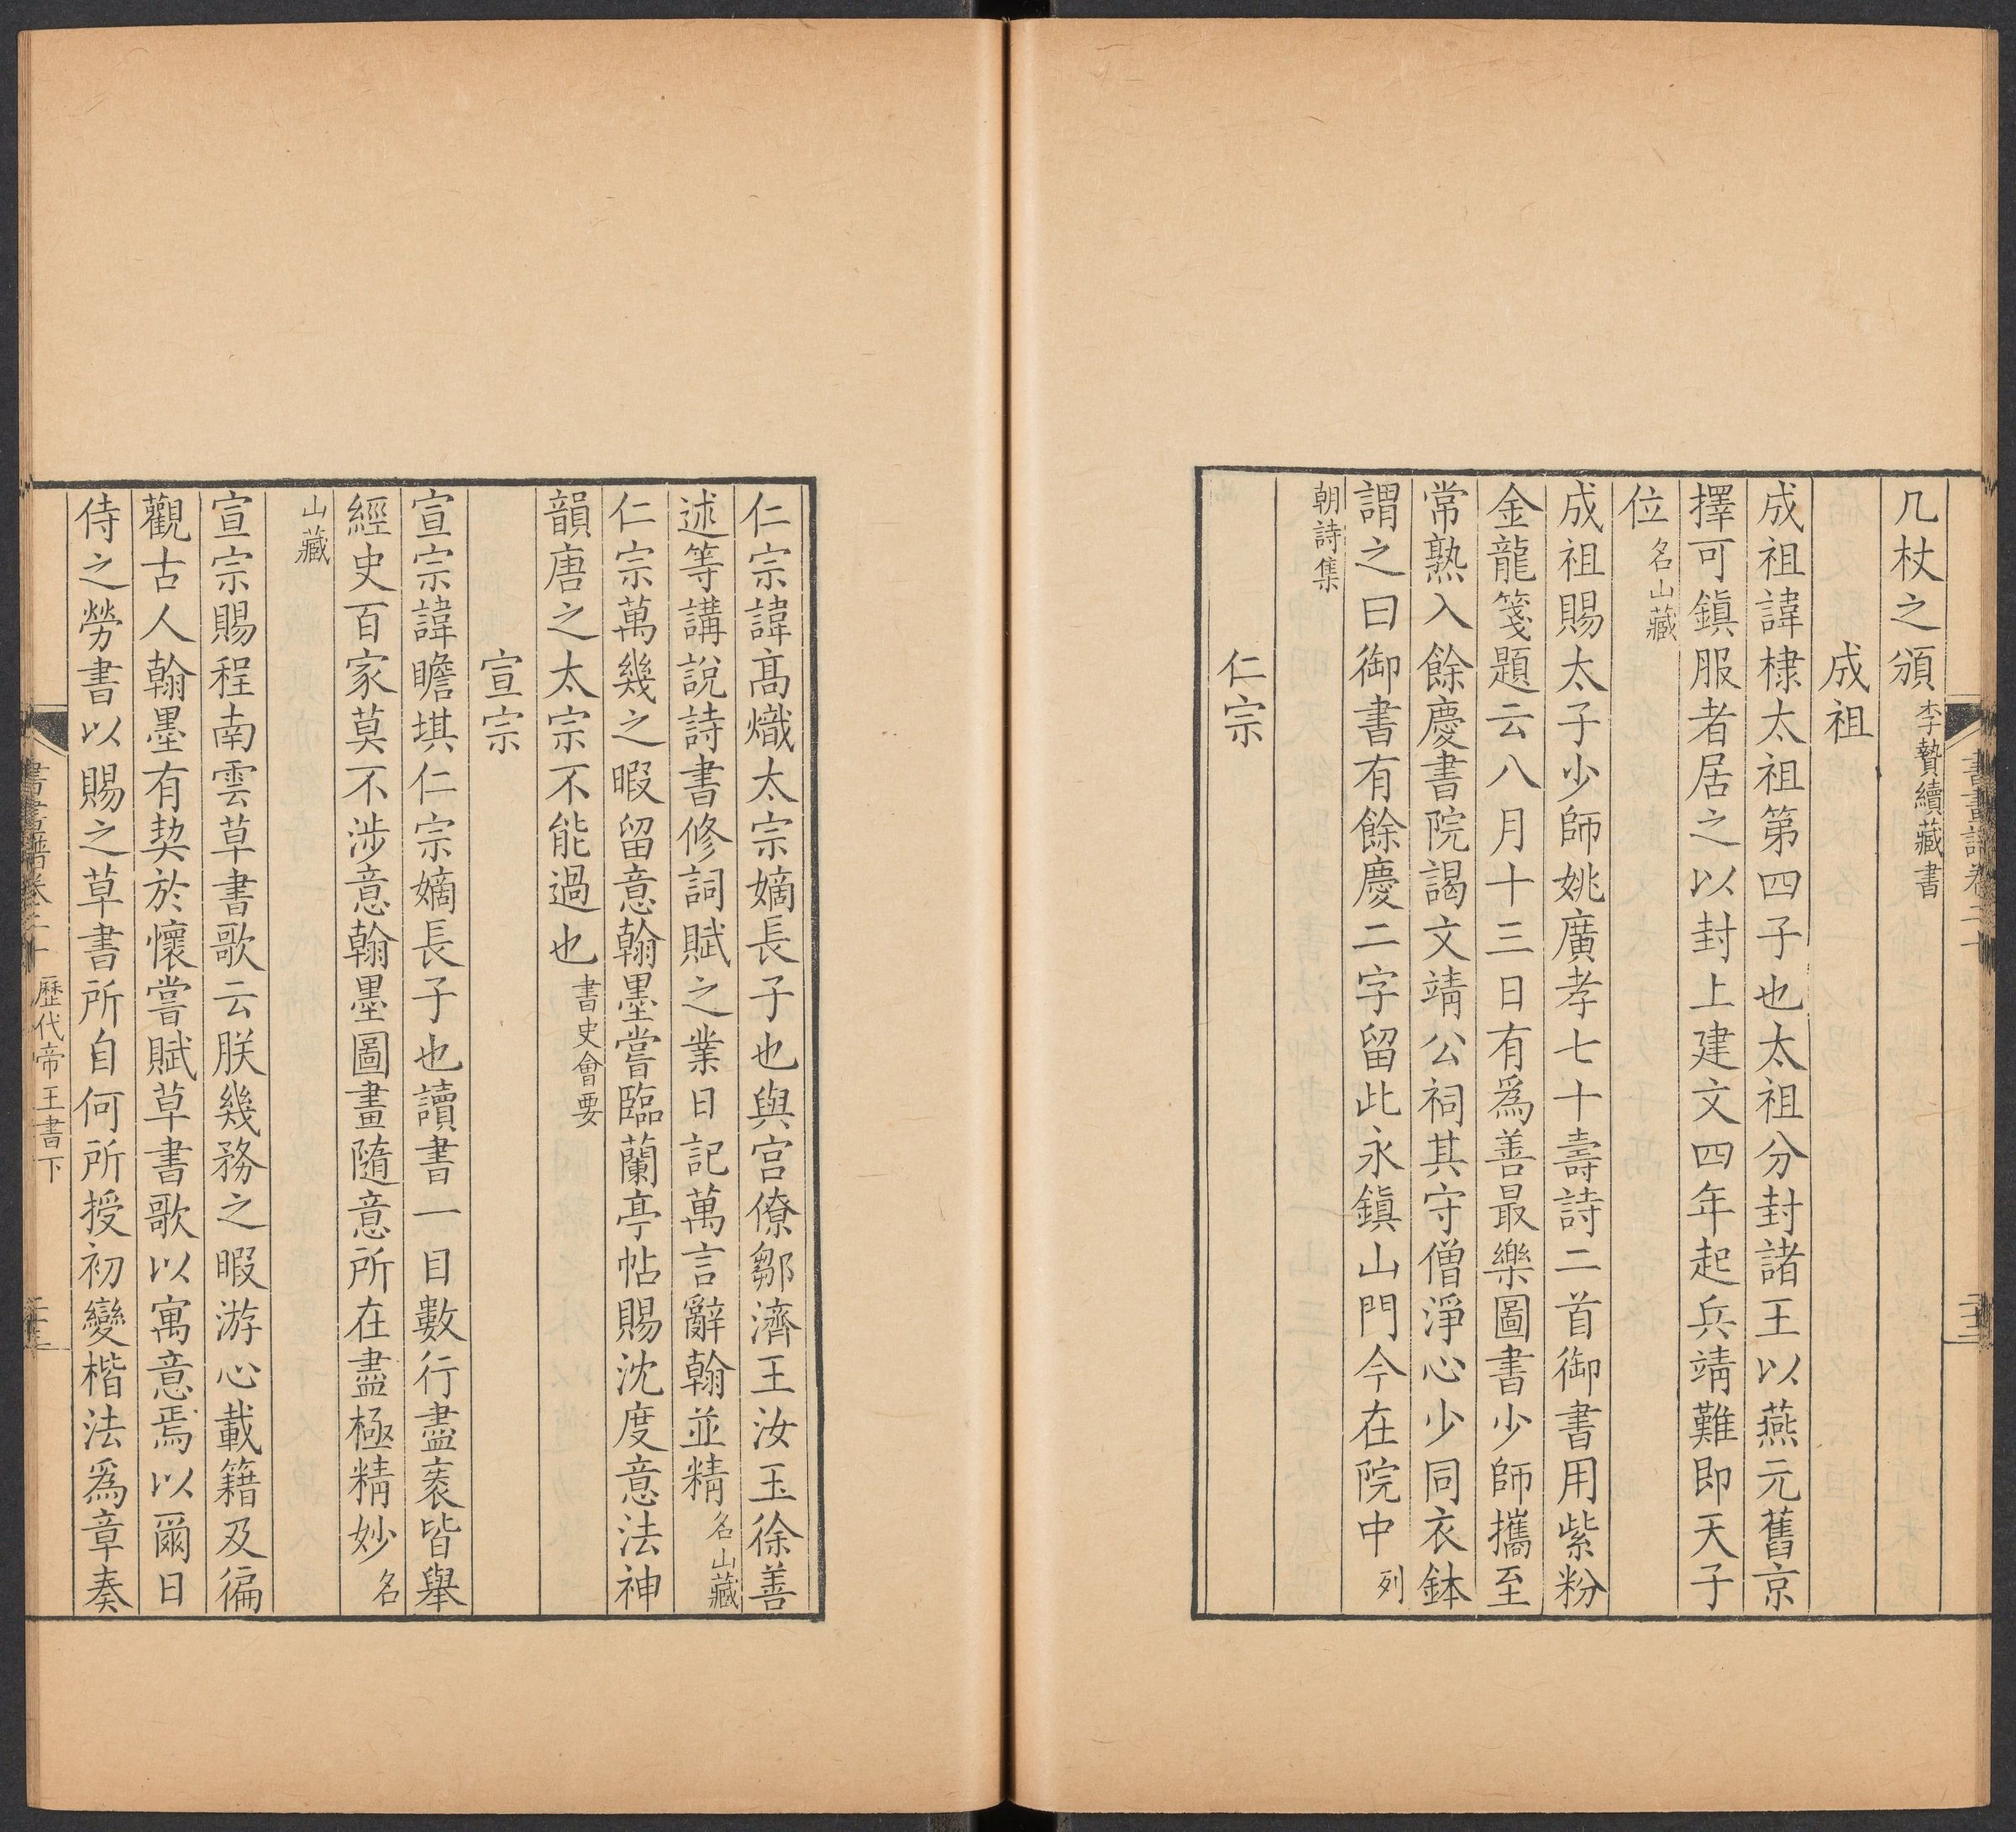 几杖之頒李贄續藏書
成祖
成祖諱棣太祖第四子也太祖分封諸王以燕元舊京
擇可鎮服者居之以封上建文四年起兵靖難即天子
位名山藏
成祖賜太子少師姚廣孝七十壽詩二首御書用紫粉
金龍箋題云八月十三日有爲善最樂圖書少師攜至
常熟入餘慶書院謁文靖公祠其守僧淨心少同衣鉢
謂之曰御書有餘慶二字留此永鎮山門今在院中列
朝詩集
仁宗
仁宗諱高熾太宗嫡長子也與宫僚鄒濟王汝玉徐善
述等講說詩書修詞賦之業日記萬言辭翰並精名山藏
仁宗萬幾之暇留意翰墨嘗臨蘭亭帖賜沈度意法神
韻唐之太宗不能過也書史會要
宣宗
宣宗諱瞻基仁宗嫡長子也讀書一目數行盡袠皆舉
經史百家莫不涉意翰墨圖畫隨意所在盡極精妙名
山藏
宣宗賜程南雲草書歌云朕幾務之暇游心載籍及徧
觀古人翰墨有契於懷嘗賦草書歌以寓意焉以爾日
侍之勞書以賜之草書所自何所授初變楷法爲章奏
書畫譜卷二十 歷代帝王書下